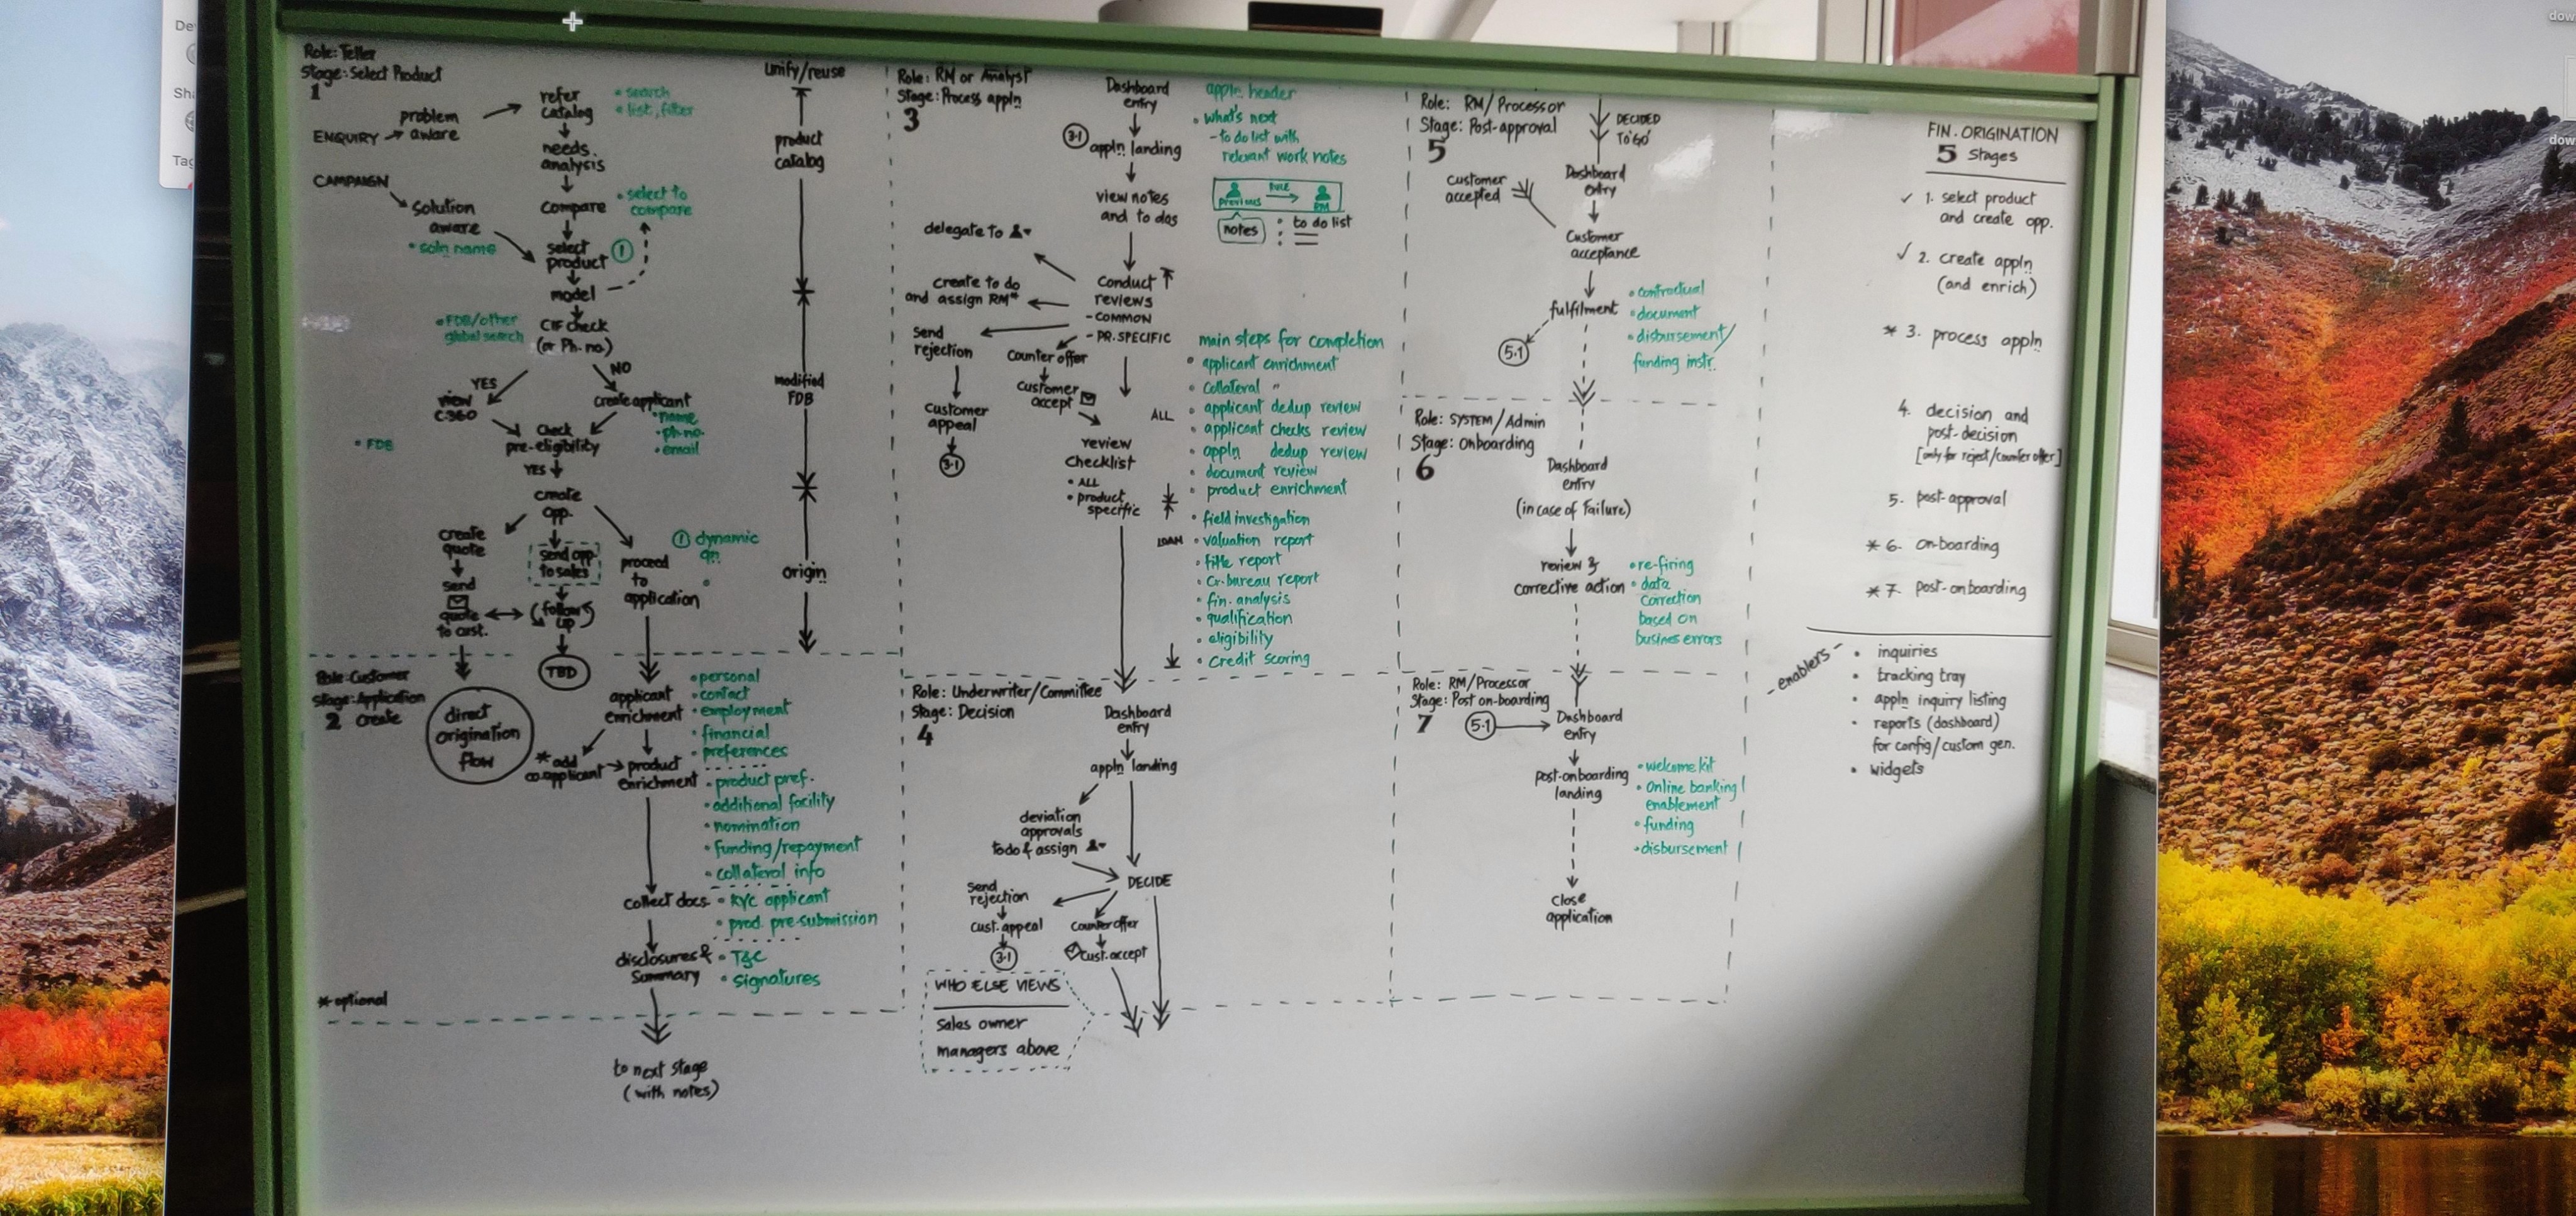 Role: Teller
Stage: Select Product
1
ENQUIRY
problem
aware
CAMPAIGN
Solution
aware
• soln name
refer
catalog
• search
• list, filter
needs
analysis
Compare
• select to
compare
select
product
1
model
• FDB/other
global search
CIF check
(or Ph. no.)
YES
NO
view
C-360
create applicant
• name
• ph. no.
• email
• FDB
Check
pre-eligibility
YES
create
opp.
create
quote
send
quote
to cust.
send opp.
to sales
(follow
up)
TBD
proceed
to
application
1 dynamic
qn.
unify/reuse
product
catalog
modified
FDB
origin
Role: Customer
Stage: Application
2 Create
direct
origination
flow
applicant
enrichment
• personal
• contact
• employment
• financial
• preferences
* add
co.applicant
product
enrichment
• product pref.
• additional facility
• nomination
• funding/repayment
• collateral info
collect docs
• KYC applicant
• prod. pre-submission
disclosures &
Summary
• T&C
• signatures
* optional
to next stage
(with notes)
Role: RM or Analyst
Stage: Process appln
3
Dashboard
entry
3.1
appln landing
appln header
• what's next
- to do list with
relevant work notes
previous
RULE
RM
notes
to do list
view notes
and to dos
delegate to
create to do
and assign RM*
Conduct
reviews
- COMMON
- PR. SPECIFIC
send
rejection
Customer
appeal
3.1
Counter offer
Customer
accept
review
checklist
• ALL
• product
specific
ALL
LOAN
main steps for completion
• applicant enrichment
• Collateral "
• applicant dedup review
• applicant checks review
• appln dedup review
• document review
• product enrichment
• field investigation
• valuation report
• title report
• Cr. bureau report
• fin. analysis
• qualification
• eligibility
• Credit scoring
Role: Underwriter/Committee
Stage: Decision
4
Dashboard
entry
appln landing
deviation
approvals
todo & assign
DECIDE
send
rejection
cust. appeal
3.1
counter offer
cust. accept
WHO ELSE VIEWS
sales owner
managers above
Role: RM/Processor
Stage: Post-approval
5
DECIDED
TO 'GO'
Customer
accepted
Dashboard
entry
Customer
acceptance
fulfilment
5.1
• contractual
• document
• disbursement/
funding instr.
Role: SYSTEM/Admin
Stage: Onboarding
6
Dashboard
entry
(in case of Failure)
review &
corrective action
• re-firing
• data
correction
based on
busines errors
Role: RM/Processor
Stage: Post on-boarding
7
5.1
Dashboard
entry
post-onboarding
landing
• welcome kit
• Online banking
enablement
• funding
• disbursement
close
application
FIN. ORIGINATION
5 Stages
✓ 1. select product
and create opp.
✓ 2. create appln
(and enrich)
* 3. process appln
4. decision and
post-decision
[only for reject/counter offer]
5. post-approval
* 6. on-boarding
* 7. post-onboarding
- enablers -
• inquiries
• tracking tray
• appln inquiry listing
• reports (dashboard)
for config/custom gen.
• widgets
De
Sha
Tag
dow
dow